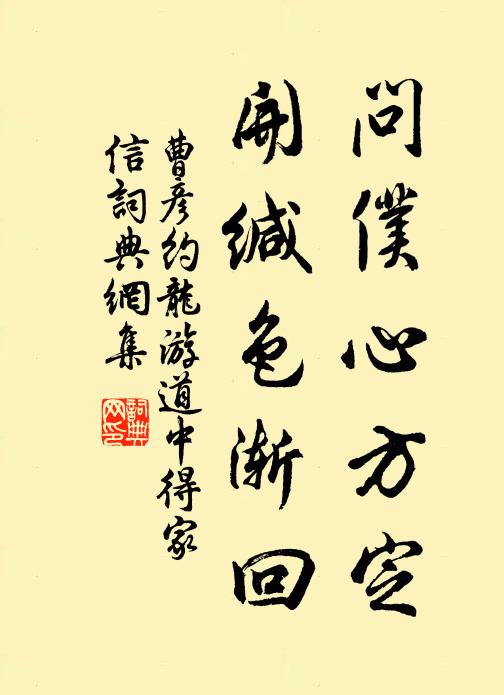 問僕心方定
開緘色漸回
曹彦約龍游道中得家
信詞典網集
詞典
网印